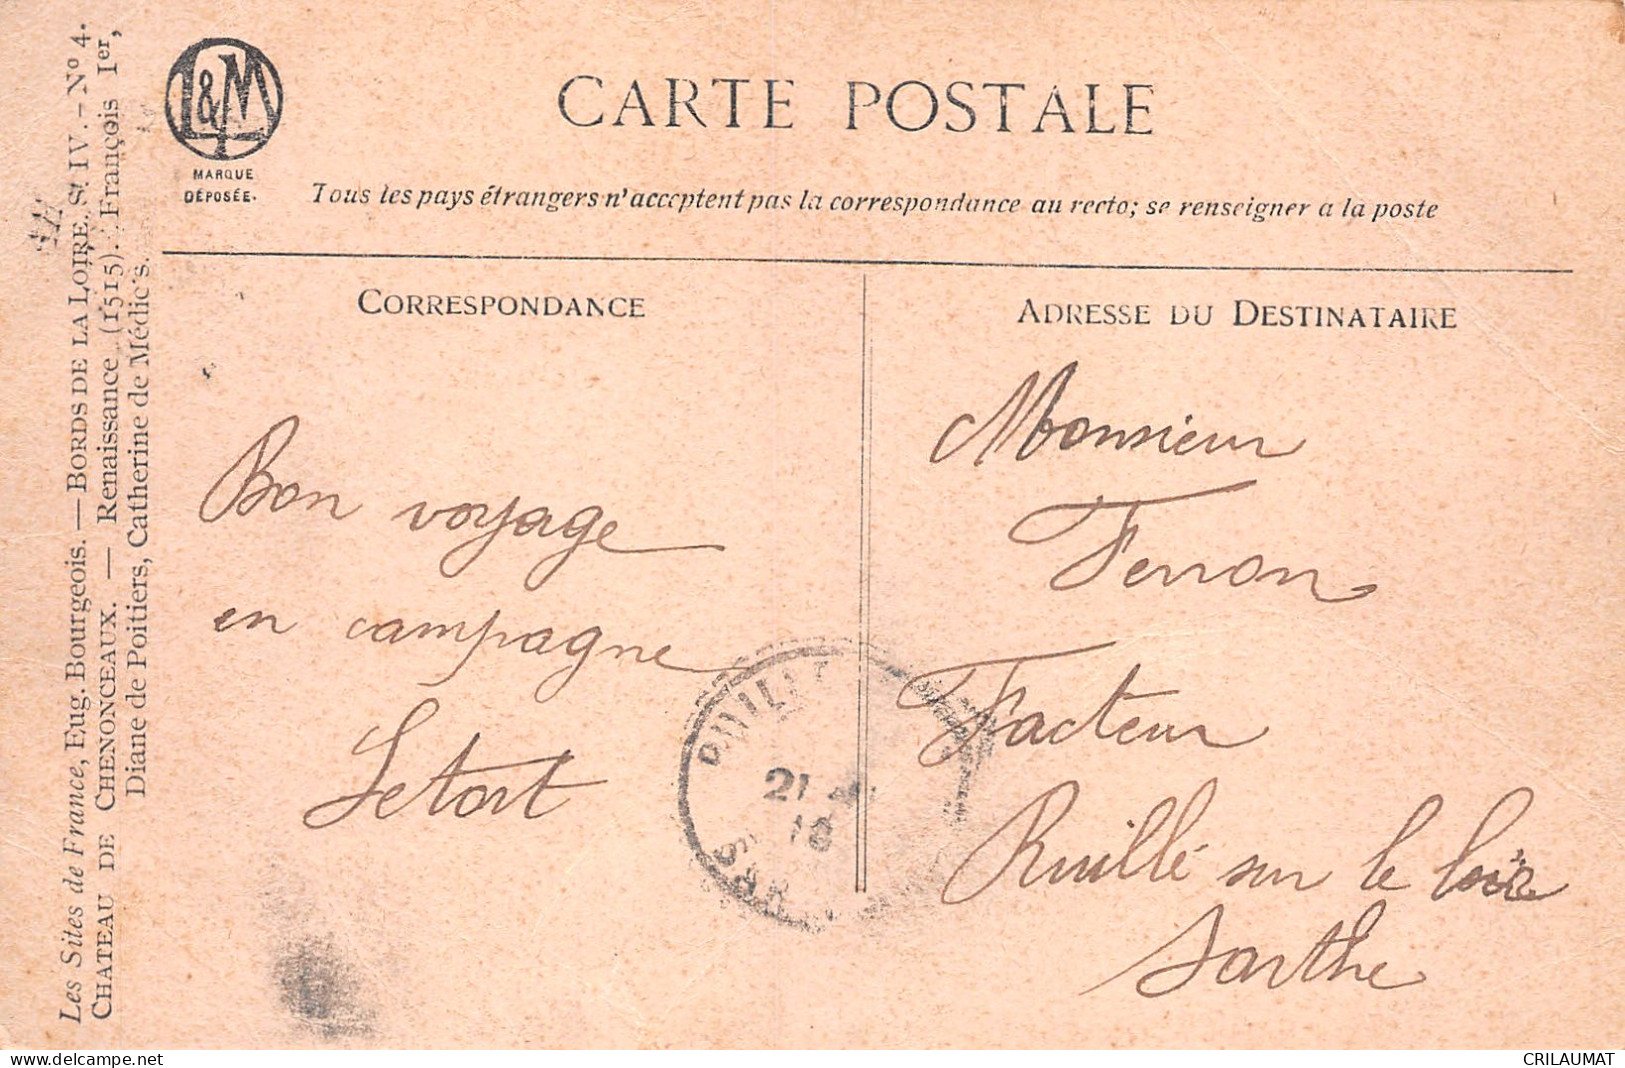 Les Sites de France, Eug. Bourgeois. — BORDS DE LA LOIRE. S. IV. - Nº 4.
CHATEAU DE CHENONCEAUX. — Renaissance (1515). François Ier,
Diane de Poitiers, Catherine de Médicis.
L&M
MARQUE
DÉPOSÉE.
CARTE POSTALE
Tous les pays étrangers n'acceptent pas la correspondance au recto; se renseigner a la poste
CORRESPONDANCE
Bon voyage
en campagne
Letort
ADRESSE DU DESTINATAIRE
Monsieur
Ferron
Facteur
Ruillé sur le loir
Sarthe
21
SAR
delcampe.net
CRILAUMAT